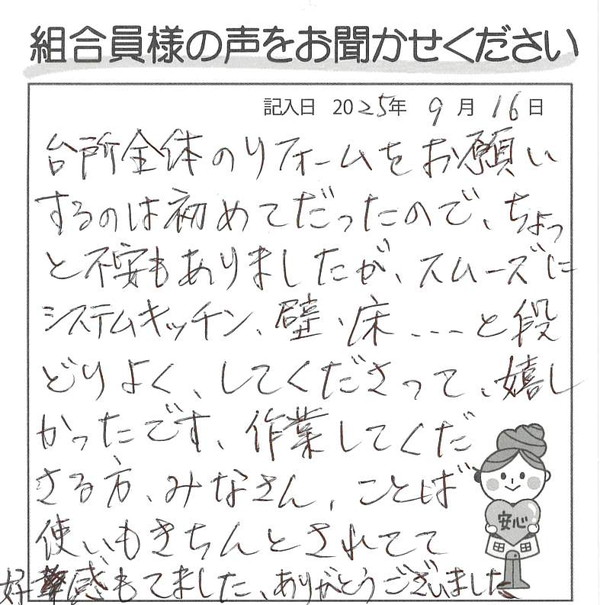 組合員様の声をお聞かせください
記入日 2025年 9月 16日
台所全体のリフォームをお願い
するのは初めてだったので、ちょっ
と不安もありましたが、スムーズに
システムキッチン、壁、床...と段
どりよく、してくださって、嬉し
かったです。作業してくだ
さる方、みなさん、ことば
使いもきちんとされてて
好感もてました、ありがとうございました
安心